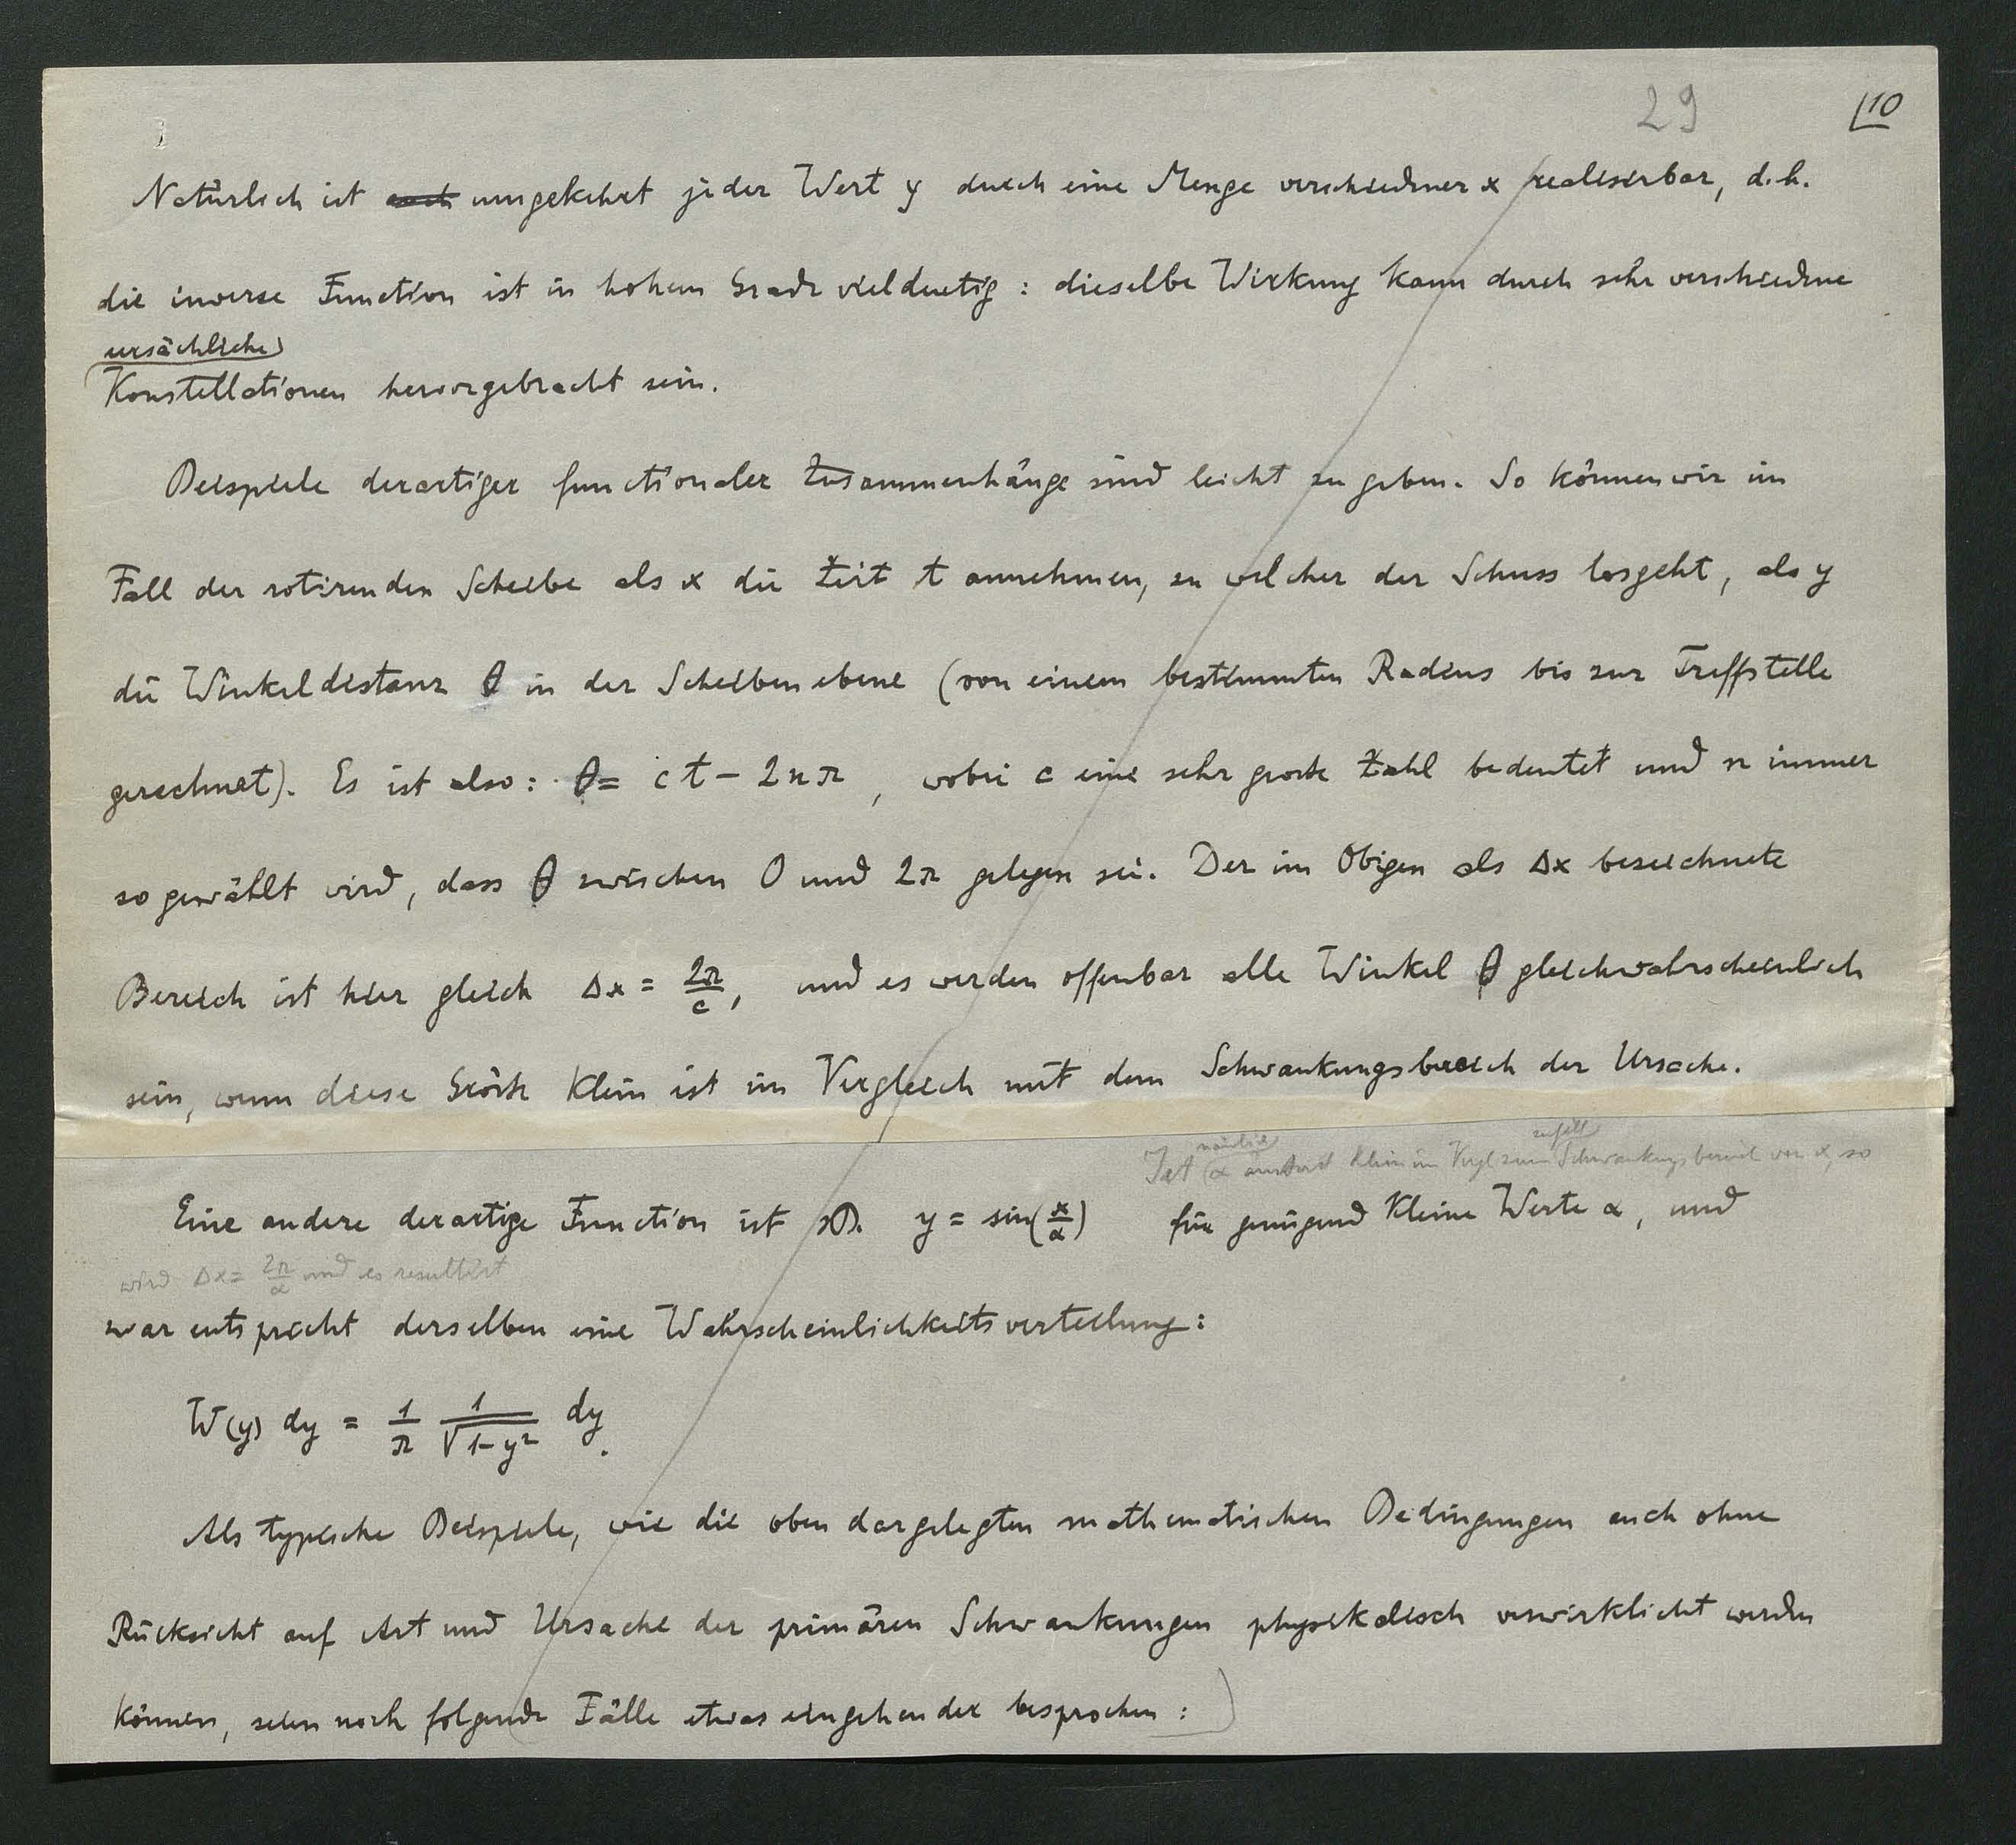 29
10
Natürlich ist auch umgekehrt jeder Wert y durch eine Menge verschiedner x realisirbar, d.h.
die inverse Function ist in hohem Grade vieldeutig: dieselbe Wirkung kann durch sehr verschiedne
ursächliche
Konstellationen hervorgebracht sein.
Beispiele derartiger functionaler Zusammenhänge sind leicht zu geben. So können wir im
Fall der rotirenden Scheibe als x die Zeit t annehmen, zu welcher der Schuss losgeht, als y
die Winkeldistanz θ in der Scheibenebene (von einem bestimmten Radius bis zur Treffstelle
gerechnet). Es ist also: θ = ct - 2nπ, wobei c eine sehr grosse Zahl bedeutet und n immer
so gewählt wird, dass θ zwischen 0 und 2π gelegen sei. Der im Obigen als Δx bezeichnete
Bereich ist hier gleich Δx = 2π/c, und es werden offenbar alle Winkel θ gleichwahrscheinlich
sein, wenn diese Grösse klein ist im Vergleich mit dem Schwankungsbereich der Ursache.
nämlich zufäll
Ist α klein im Vgl zum Schwankungsbereich von x, so
Eine andere derartige Function ist zB. y = sin(x/α) für genügend kleine Werte α, und
wird Δx = 2π/α und es resultirt
zwar entspricht derselben eine Wahrscheinlichkeitsverteilung:
W(y) dy = 1/π 1/√1-y² dy.
Als typische Beispiele, wie die oben dargelegten mathematischen Bedingungen auch ohne
Rücksicht auf Art und Ursache der primären Schwankungen physikalisch verwirklicht werden
können, seien noch folgende Fälle etwas eingehender besprochen: